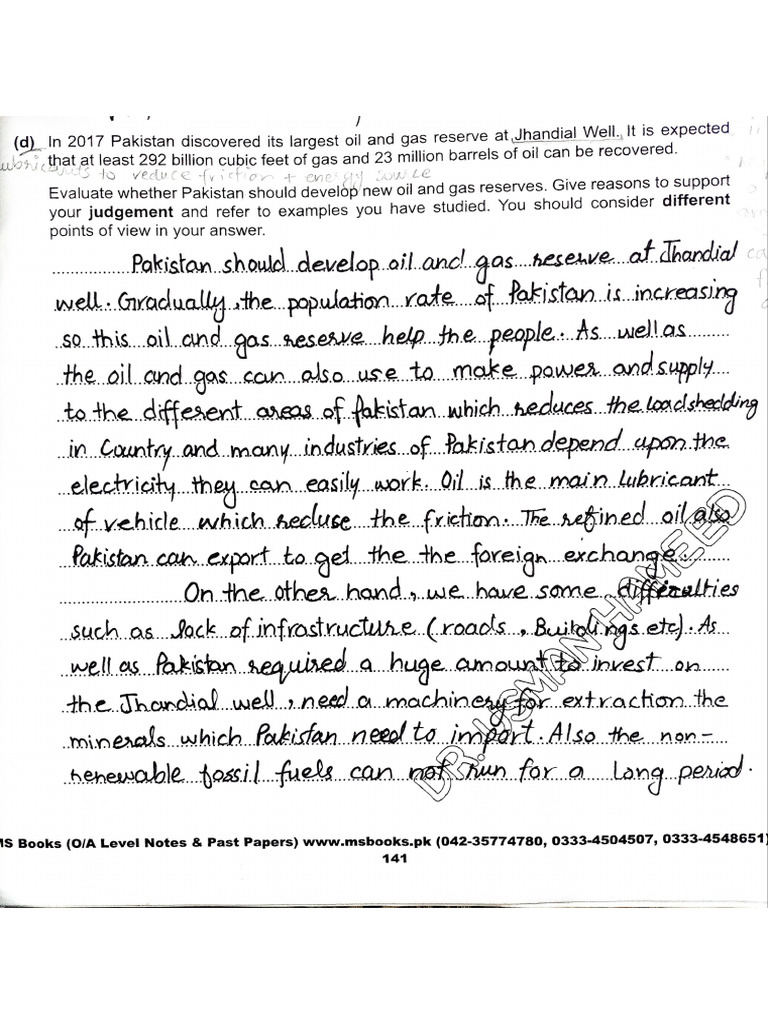 (d) In 2017 Pakistan discovered its largest oil and gas reserve at Jhandial Well. It is expected
that at least 292 billion cubic feet of gas and 23 million barrels of oil can be recovered.
to reduce friction + energy source
Evaluate whether Pakistan should develop new oil and gas reserves. Give reasons to support
your judgement and refer to examples you have studied. You should consider different
points of view in your answer.
Pakistan should develop oil and gas reserve at Jhandial
well. Gradually, the population rate of Pakistan is increasing
so this oil and gas reserve help the people. As well as
the oil and gas can also use to make power and supply
to the different areas of Pakistan which reduces the loadshedding
in Country and many industries of Pakistan depend upon the
electricity they can easily work. Oil is the main lubricant
of vehicle which reduse the friction. The refined oil also
Pakistan can export to get the the foreign exchange.
On the other hand, we have some difficulties
such as lack of infrastructure (roads, Buildings etc). As
well as Pakistan required a huge amount to invest on
the Jhandial well, need a machinery for extraction the
minerals which Pakistan need to import. Also the non-
renewable fossil fuels can not run for a long period.
DR. USMAN HAMEED
MS Books (O/A Level Notes & Past Papers) www.msbooks.pk (042-35774780, 0333-4504507, 0333-4548651)
141